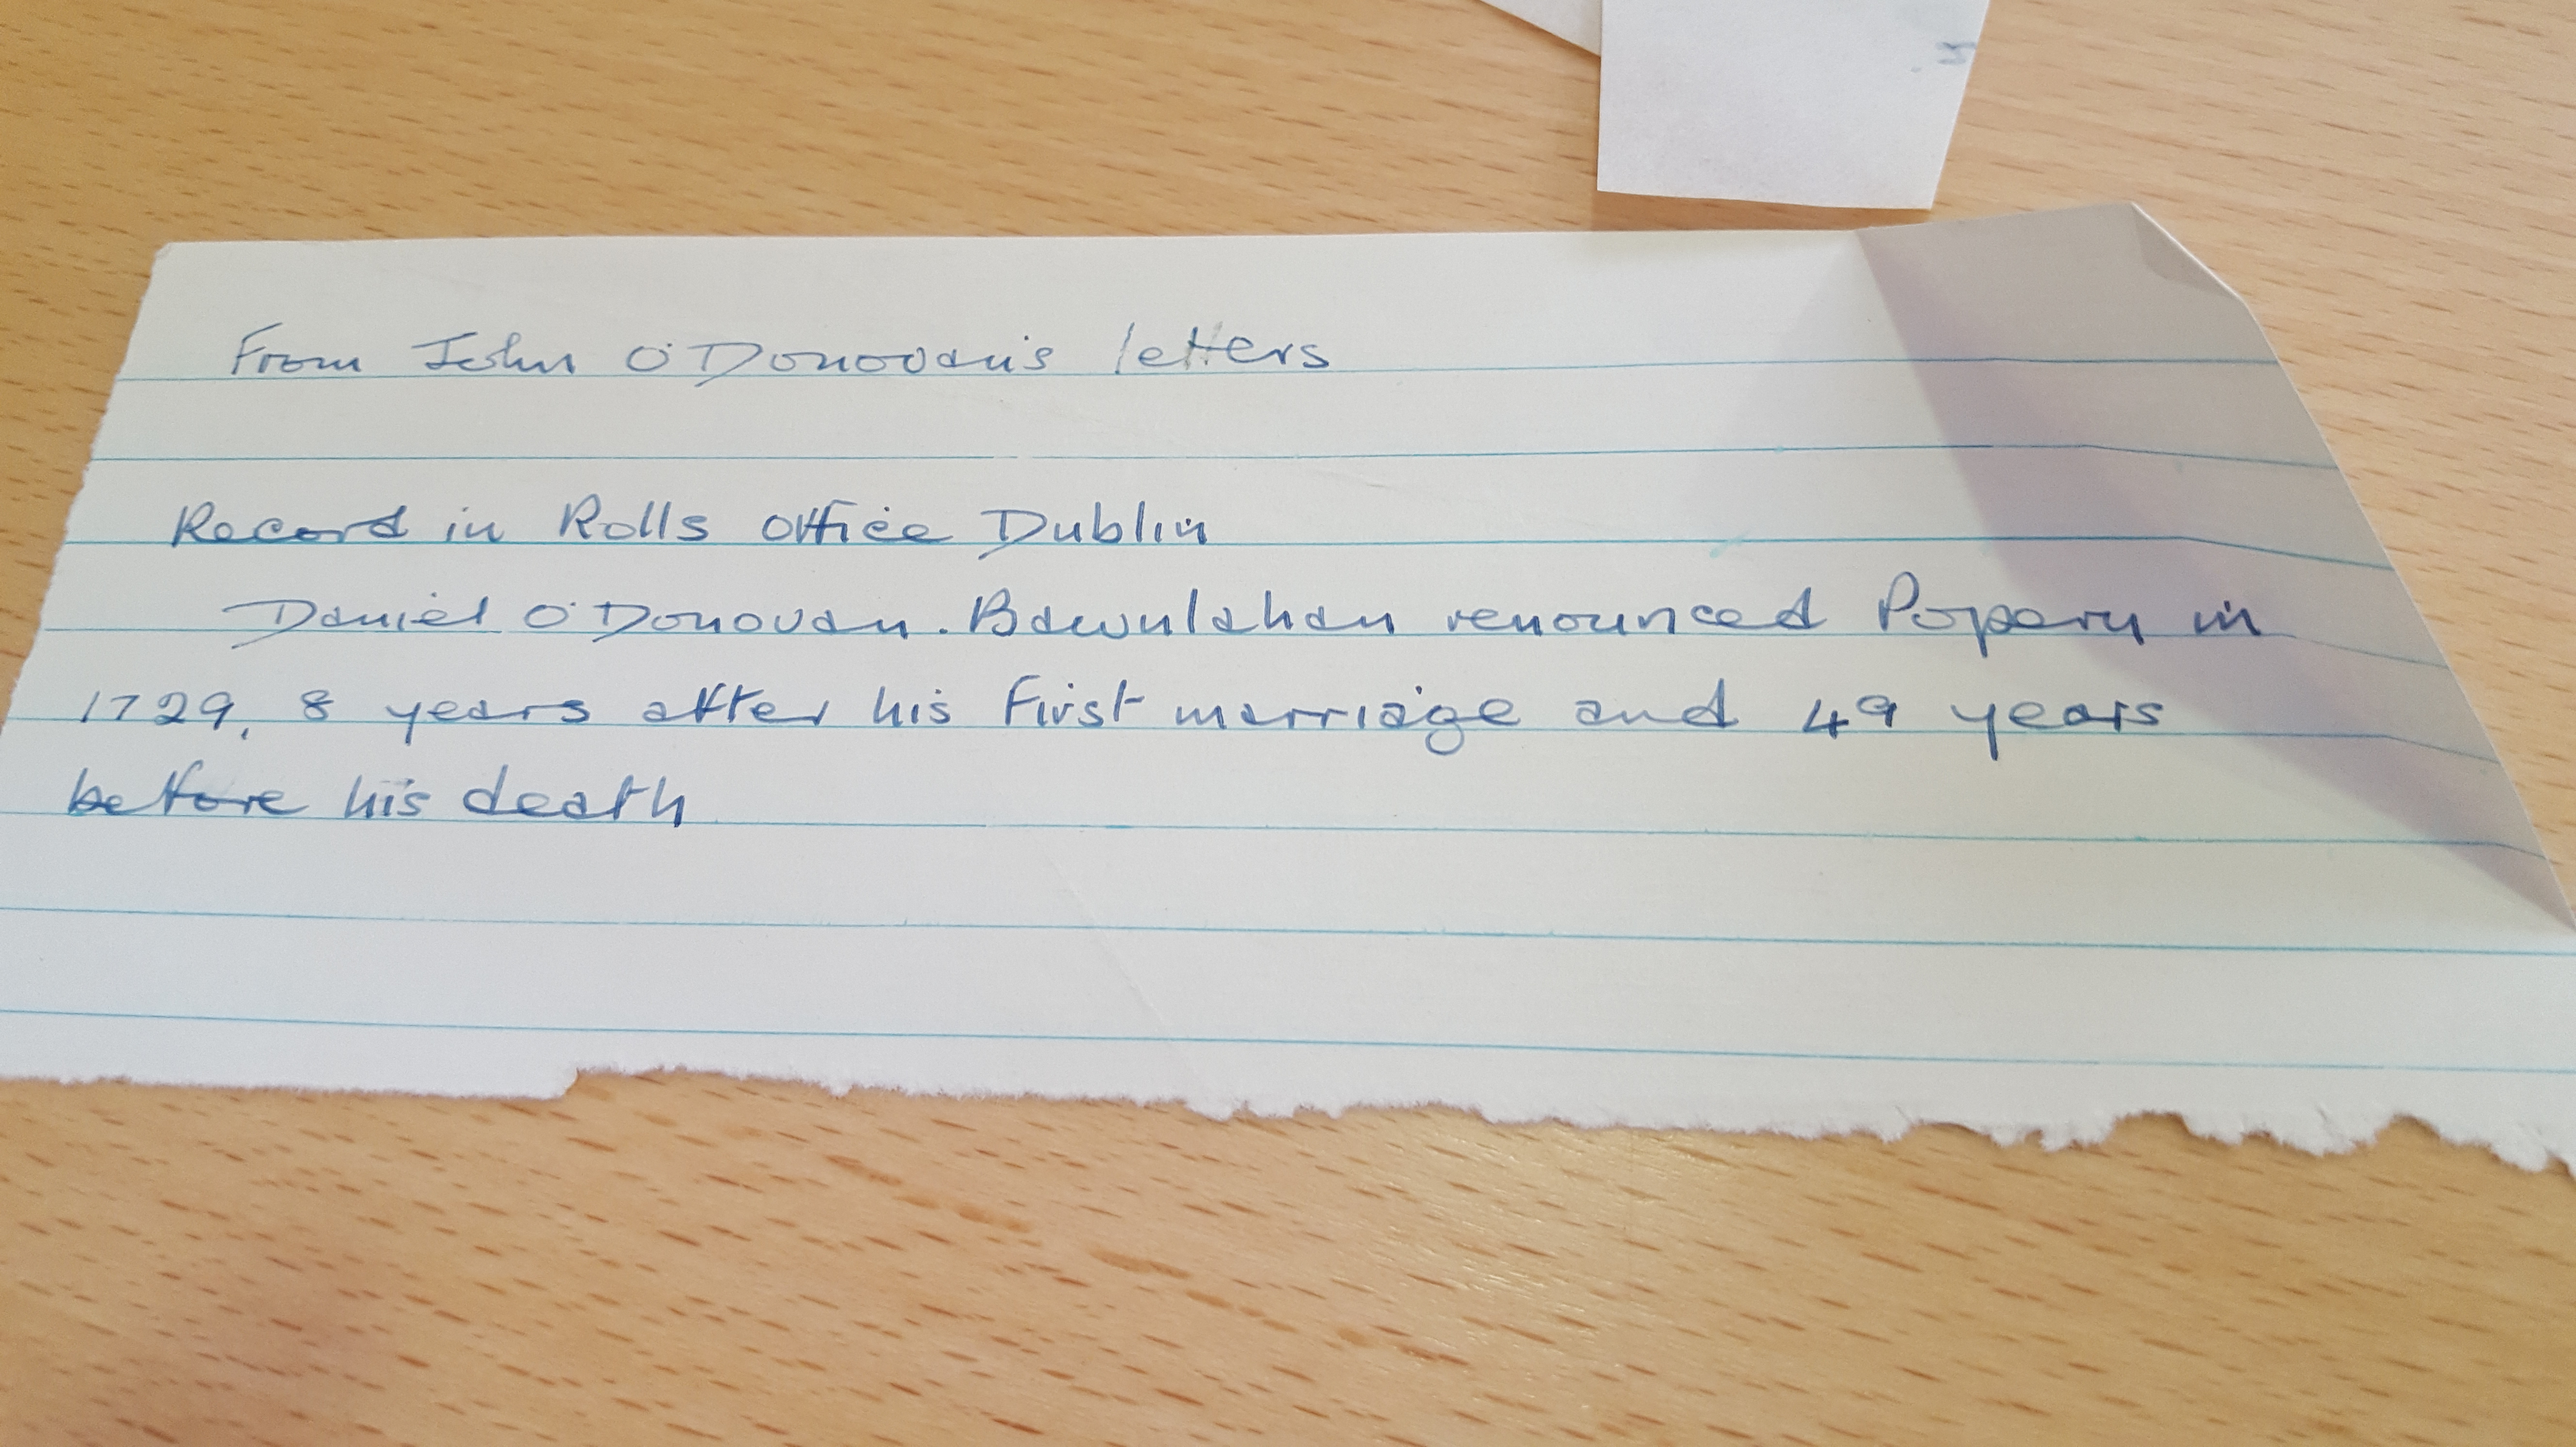 From John O'Donovan's letters
Record in Rolls Office Dublin
Daniel O'Donovan. Bawnlahan renounced Popery in
1729, 8 years after his first marriage and 49 years
before his death